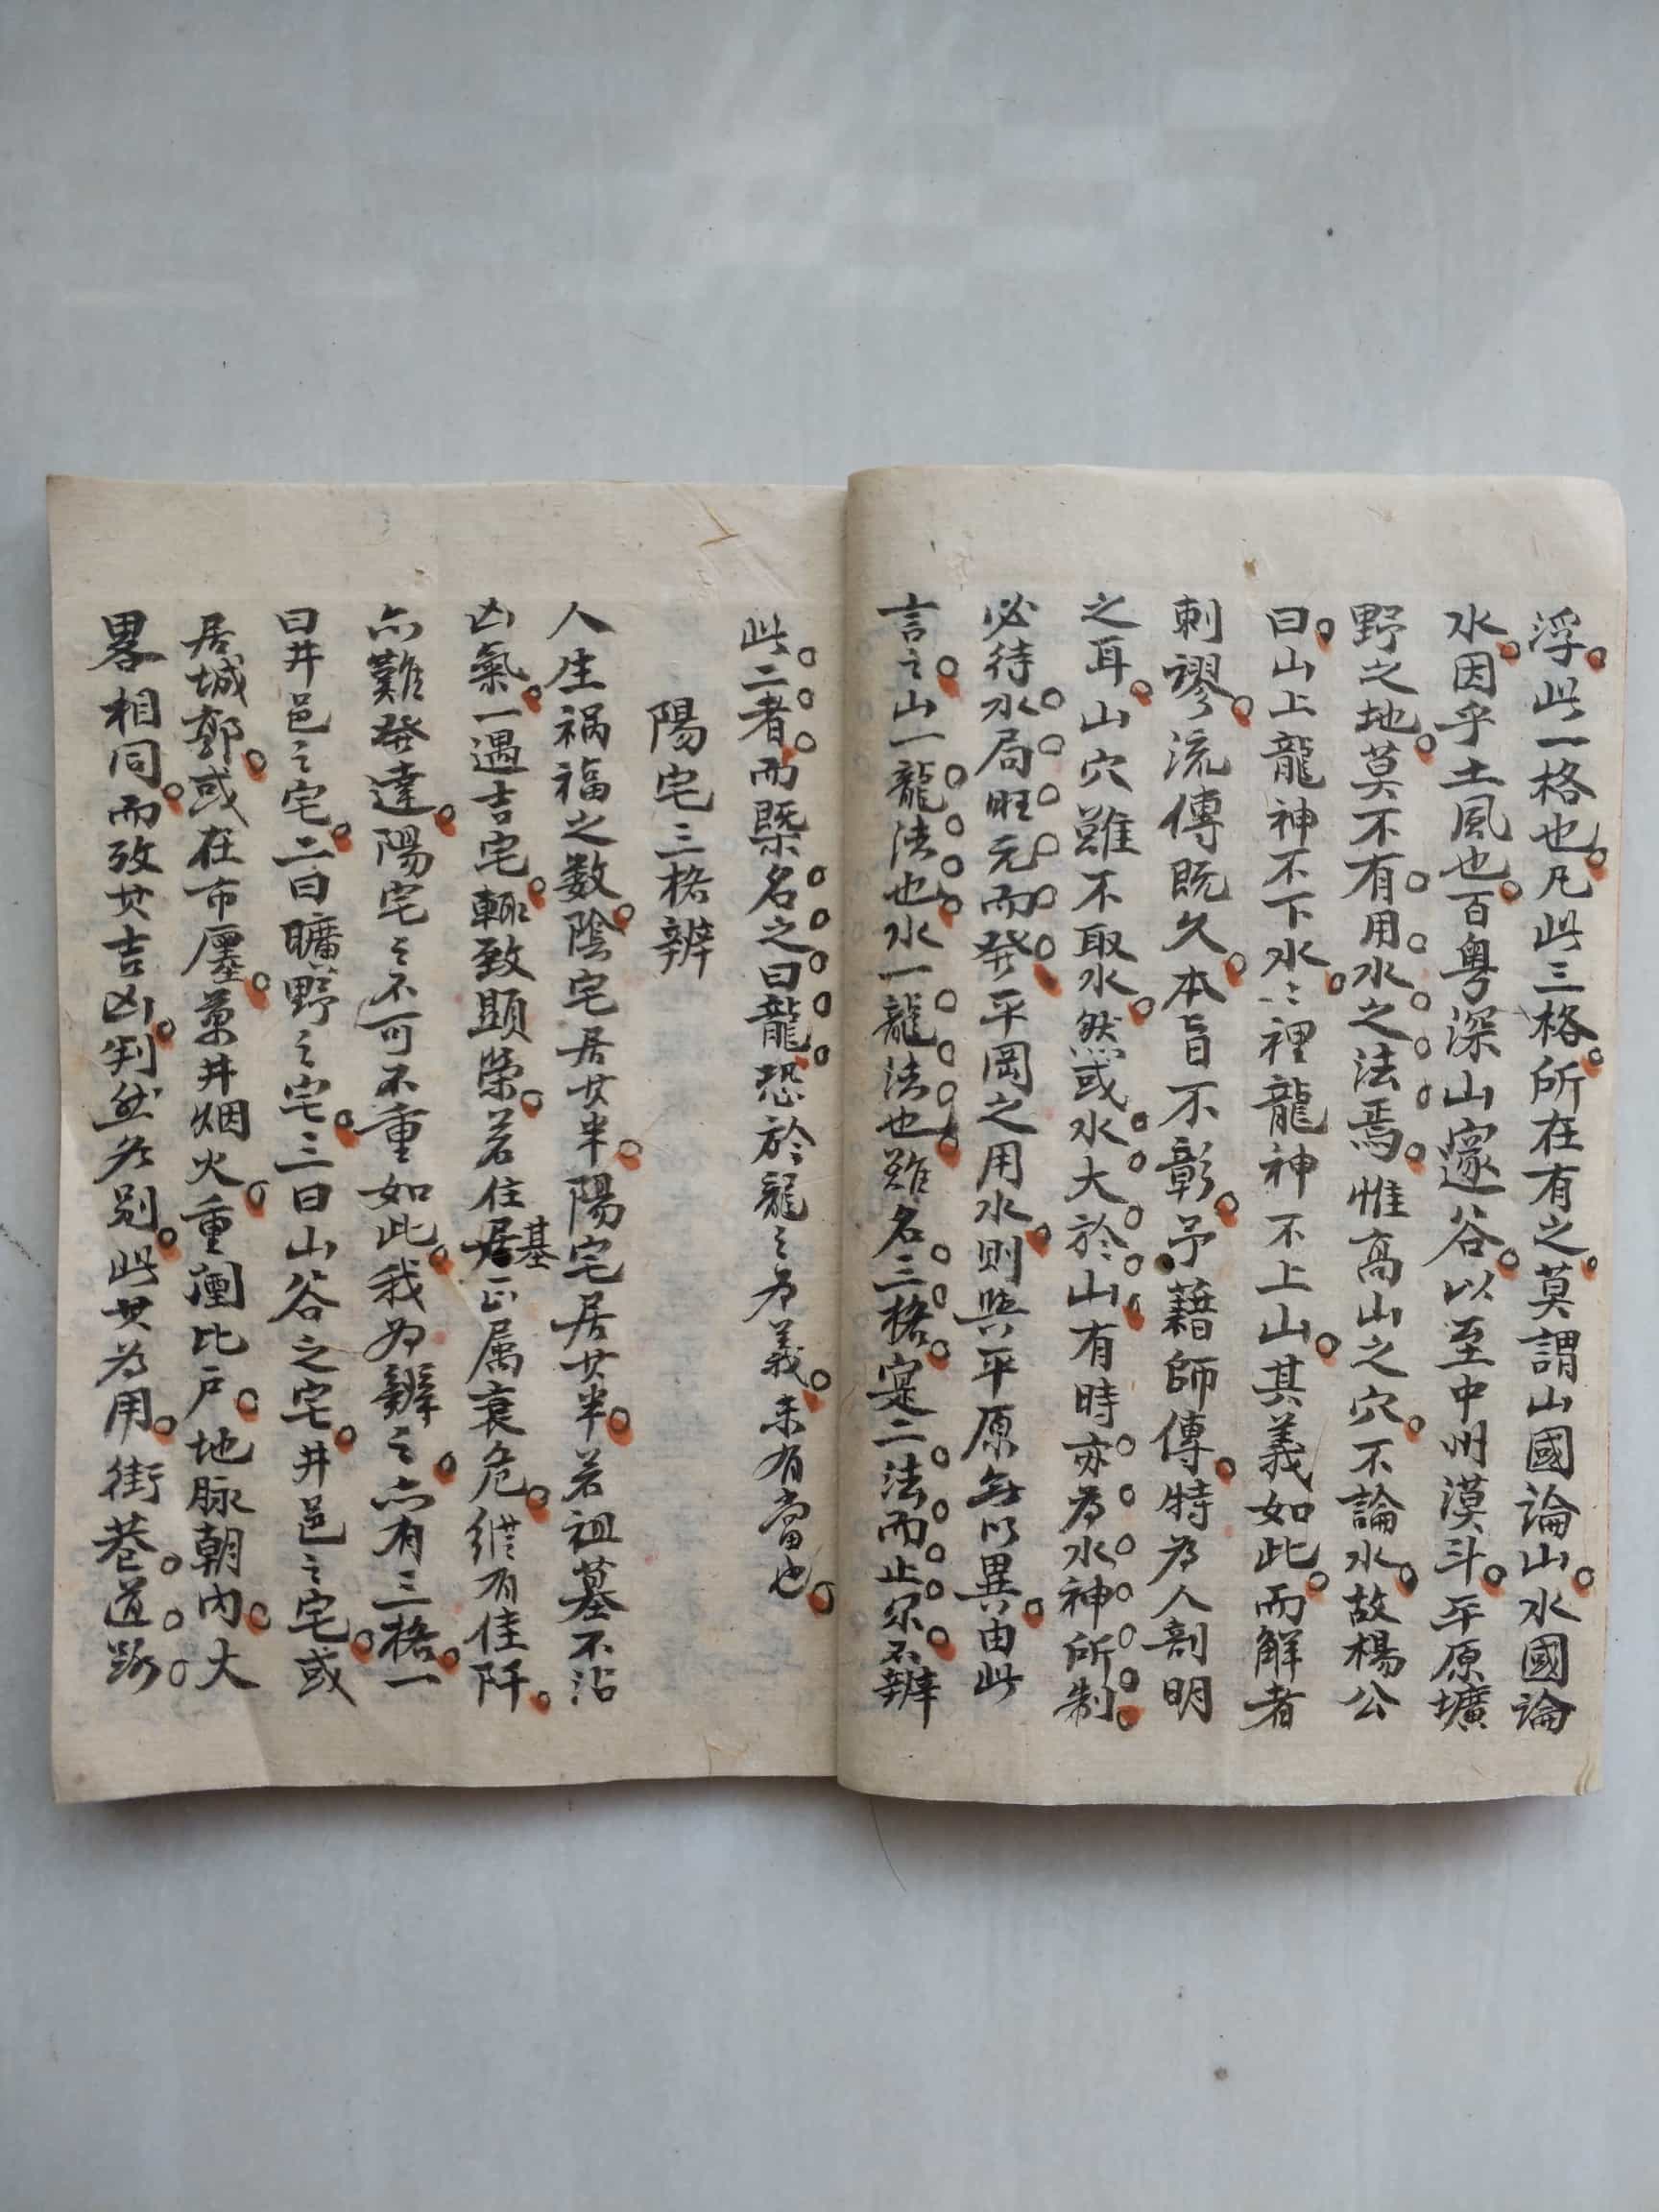 浮此一格也凡此三格所在有之莫謂山國論山水國論
水因乎土風也百粤深山邃谷以至中州漠斗平原壙
野之地莫不有用水之法焉惟高山之穴不論水故楊公
曰山上龍神不下水〻裡龍神不上山其義如此而解者
刺謬流傳既久本旨不彰予藉師傳特為人剖明
之耳山穴雖不取水然或水大於山有時亦為水神所制
必待水局旺元而發平岡之用水則與平原無以異由此
言之山一龍法也水一龍法也雖名三格寔二法而止尔不辨
此二者而槩名之曰龍恐於龍之為義未有當也
陽宅三格辨
人生禍福之数陰宅居其半陽宅居其半若祖墓不沾
凶氣一遇吉宅輒致顯榮若住居基正属衰危縱有佳阡
亦難發達陽宅之不可不重如此我為辨之亦有三格一
曰井邑之宅二曰曠野之宅三曰山谷之宅井邑之宅或
居城郭或在市廛萬井烟火重闉比户地脉朝内大
畧相同而攷其吉凶判然各别此其為用街巷道路